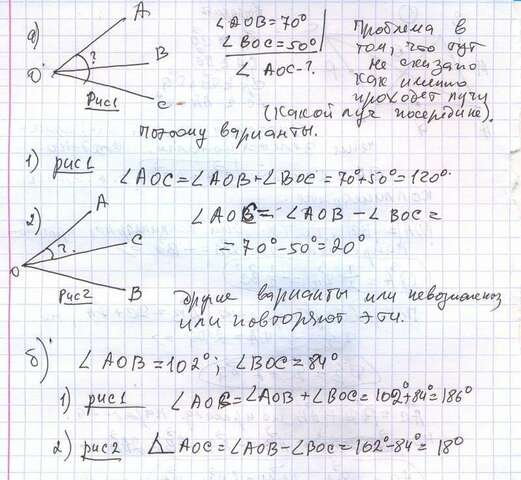 а)
A
B
C
O
?
Рис1
∠AOB=70°
∠BOC=50°
∠AOC-?
Проблема в
том, что тут
не сказано
как именно
проходят лучи
(Какой луч посередине).
Поэтому варианты.
1) рис1
∠AOC=∠AOB+∠BOC=70°+50°=120°
2)
A
C
B
O
?
Рис2
∠AOC=∠AOB-∠BOC=
=70°-50°=20°
другие варианты или невозможны
или повторяют эти.
б) ∠AOB=102°; ∠BOC=84°
1) рис1 ∠AOC=∠AOB+∠BOC=102°+84°=186°
2) рис2 ∠AOC=∠AOB-∠BOC=102°-84°=18°